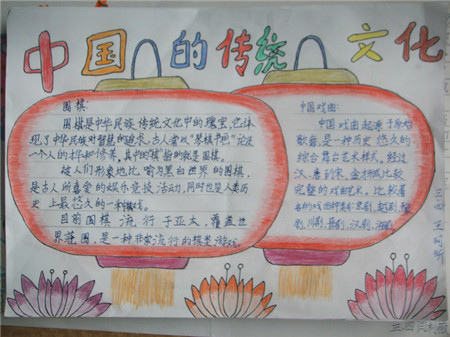 中国的传统文化
围棋:
围棋是中华民族传统文化中的瑰宝,它体
现了中华民族对智慧的追求,古人常以“琴棋书画”论及
一个人的才华和修养,其中的棋指的就是围棋。
被人们形象地比喻为黑白世界的围棋,
是古人所喜爱的娱乐竞技活动,同时也是人类历
史上最悠久的一种棋戏。
目前围棋流行于亚太,覆盖世
界范围,是一种非常流行的棋类游戏。
中国戏曲:
中国戏曲起源于原始
歌舞,是一种历史悠久的
综合舞台艺术样式,经过
汉、唐到宋、金才形成比较
完整的戏曲艺术,比较著
名的戏曲种类有:京剧、
三四